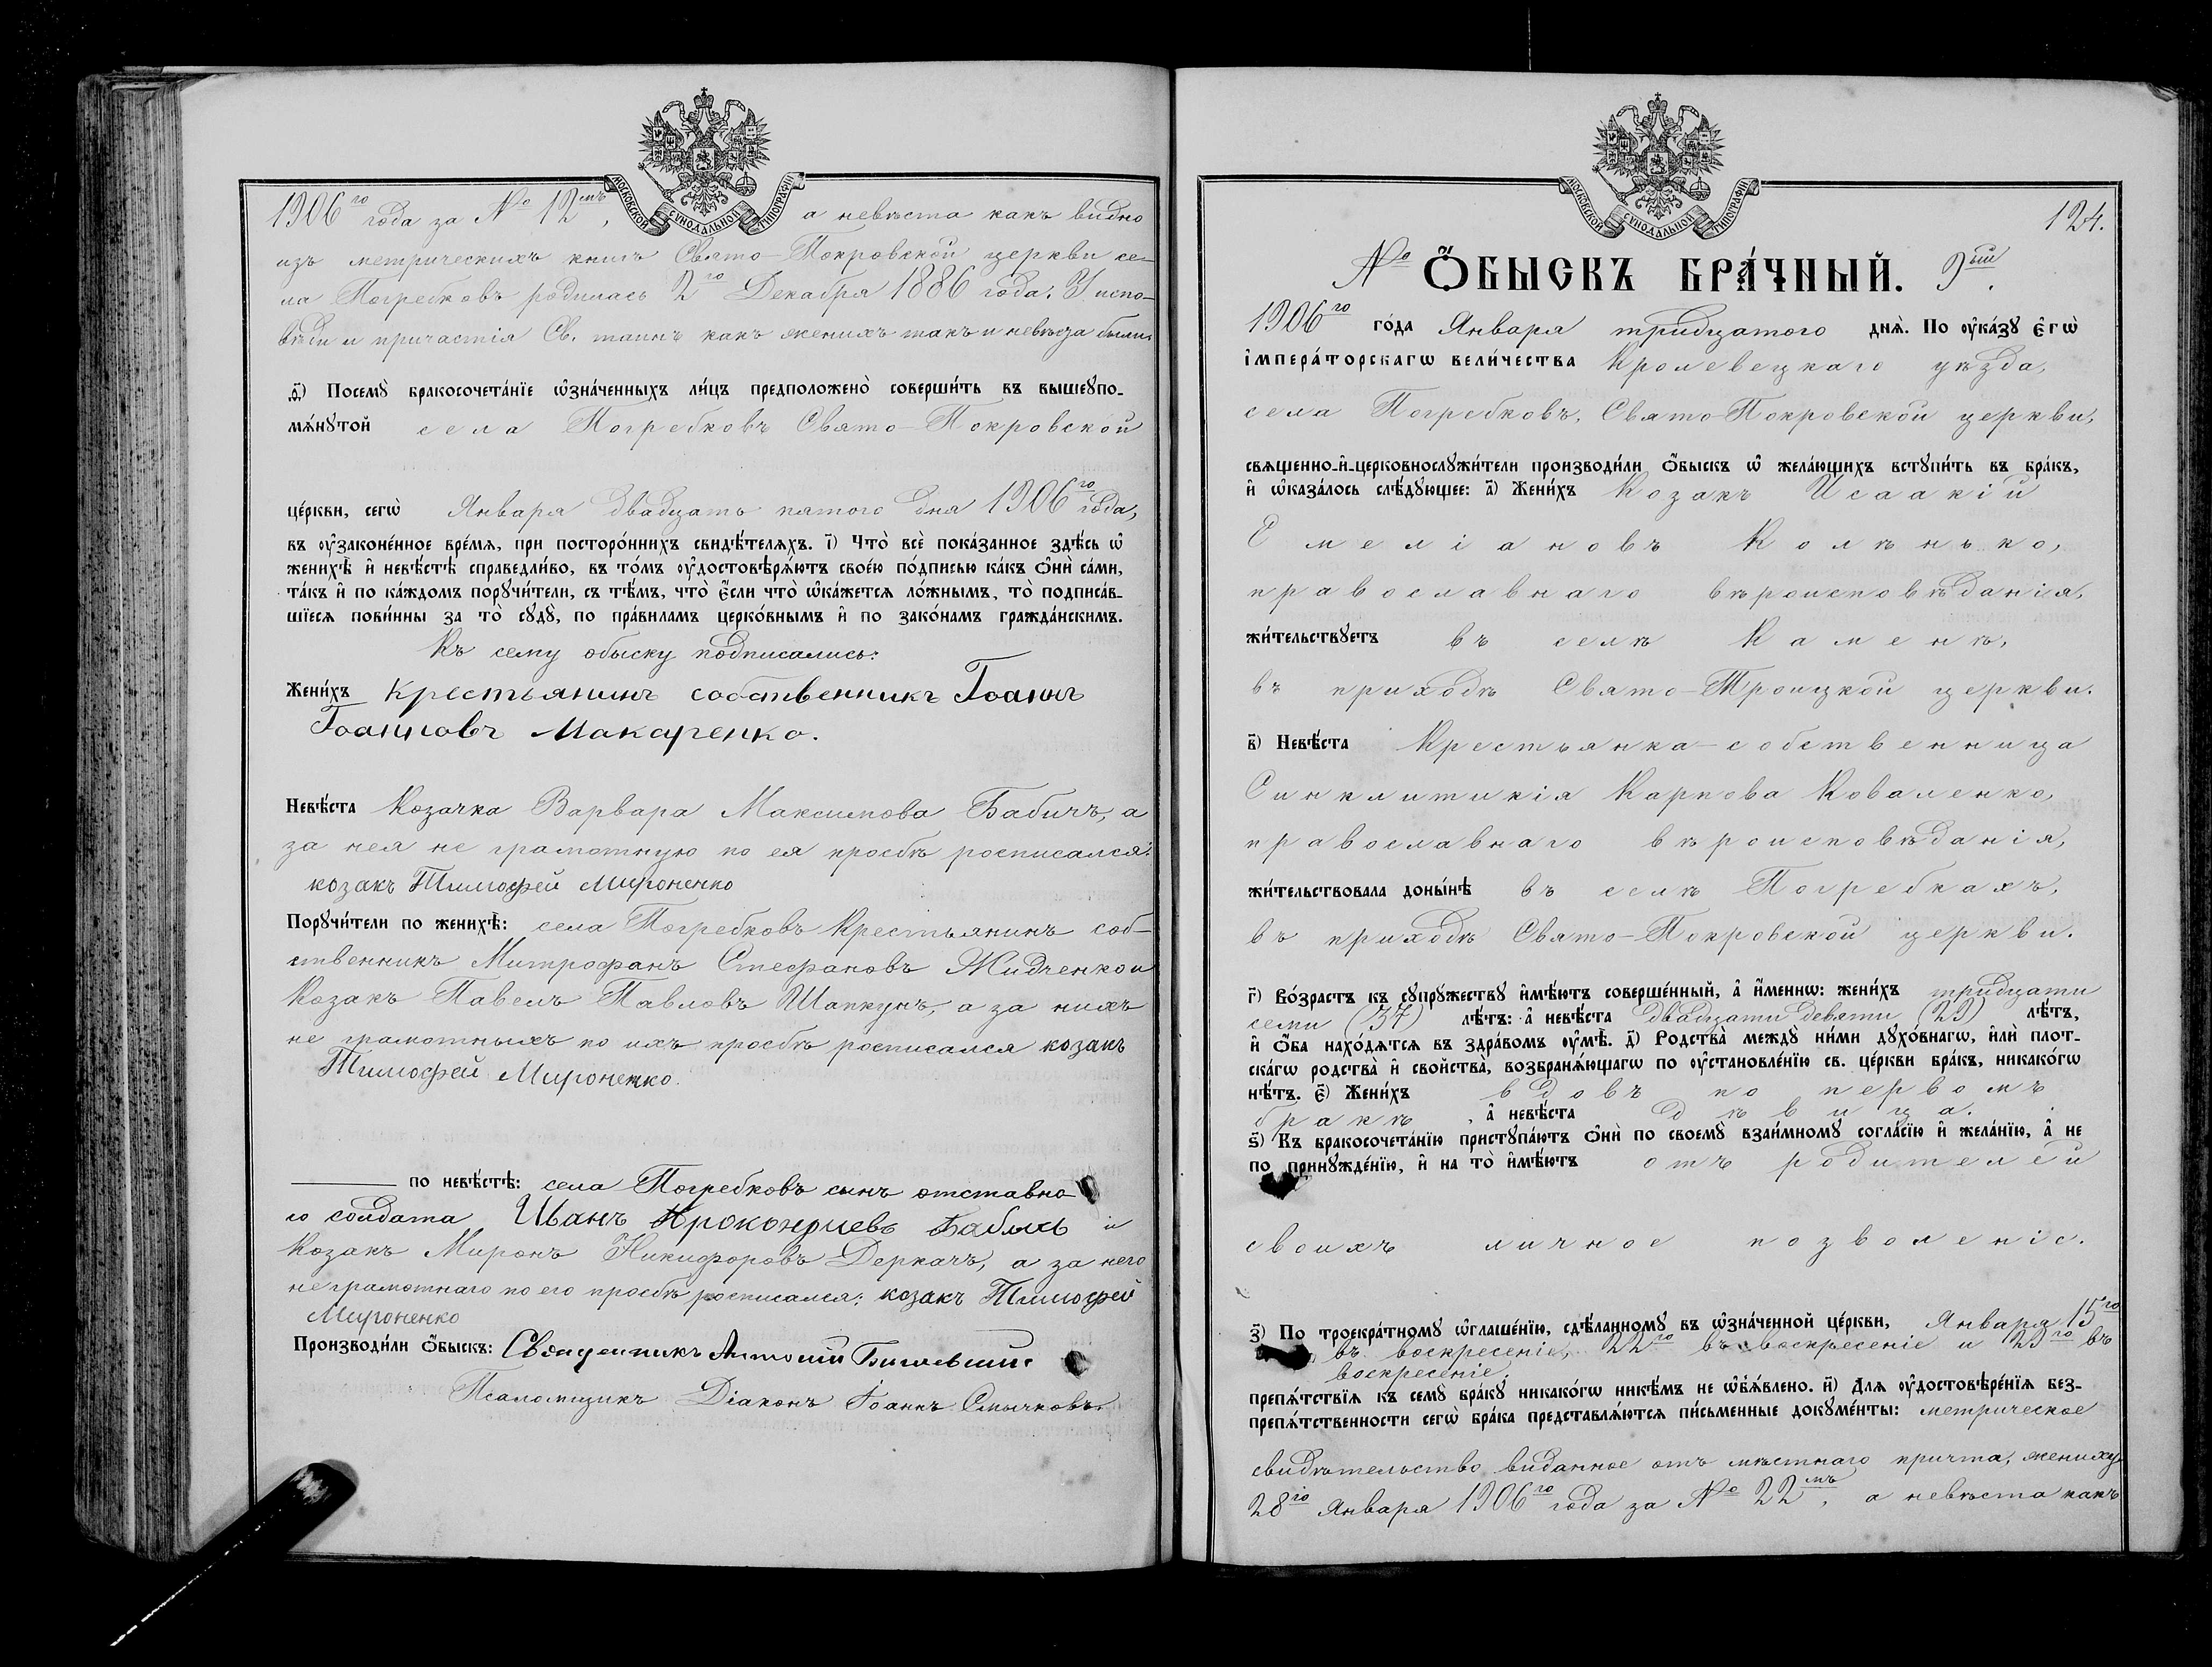 МОСКОВСКОЙ СУНОДАЛЬНОЙ ТИПОГРАФІИ
1906го года за № 12мъ, а невѣста какъ видно
изъ метрическихъ книгъ Свято-Покровской церкви се-
ла Погребковъ родилась 2го Декабря 1886 года. У испо-
вѣди и причастія Св. таинъ какъ женихъ такъ и невѣста были.
ѳ҃) Посемꙋ̀ бракосочета́нїе ѡ҆зна́ченныхъ ли́цъ предположено̀ соверши́ть въ вышеꙋпо-
мѧ́нꙋтой села Погребковъ Свято-Покровской
це́ркви, сегѡ̀ Января двадцать пятого дня 1906го года,
въ ᲂу҆законе́нное вре́мѧ, при посторо́ннихъ свидѣ́телѧхъ. і҃) Что̀ всѐ пока́занное здѣ́сь ѡ҆
женихѣ̀ и҆ невѣ́стѣ справедли́во, въ то́мъ ᲂу҆достовѣрѧ́ютъ свое́ю по́дписью ка́къ ѻ҆нѝ са́ми,
та́къ и҆ по ка́ждомъ порꙋчи́тели, съ тѣ́мъ, что̀ є҆́сли что̀ ѡ҆ка́жетсѧ ло́жнымъ, то̀ подписа́в-
шїесѧ пови́нны за то̀ сꙋдꙋ̀, по пра́виламъ церко́внымъ и҆ по зако́намъ гражда́нскимъ.
Къ сему обыску подписались:
Жени́хъ крестьянинъ собственникъ Іоаннъ
Іоанновъ Макаренко.
Невѣ́ста Козачка Варвара Максимова Бабичъ, а
за нея не грамотную по ея просбѣ росписался:
козакъ Тимофей Мироненко
Порꙋчи́тели по женихѣ̀: села Погребковъ Крестьянинъ соб-
ственникъ Митрофанъ Стефановъ Жидченко и
Козакъ Павелъ Павловъ Шапкунъ, а за нихъ
не грамотныхъ по ихъ просбѣ росписался козакъ
Тимофей Мироненко.
по невѣ́стѣ: села Погребковъ сынъ отставно
го солдата Иванъ Бабычъ и
Козакъ Миронъ Никифоровъ Деркачъ, а за него
не грамотнаго по его просбѣ росписался: козакъ Тимофей
Мироненко
Производи́ли ѻ҆́быскъ: Священникъ Антоній
Псаломщикъ Діаконъ Іоаннъ Смычковъ.
МОСКОВСКОЙ СУНОДАЛЬНОЙ ТИПОГРАФІИ
124.
№ Ѻ҆́БЫСКЪ БРА́ЧНЫЙ. 9ый.
1906го го́да Января тридцатого днѧ̀. По ᲂу҆ка́зꙋ є҆гѡ̀
і҆мпера́торскагѡ вели́чества Кролевецкаго уѣзда,
села Погребковъ, Свято-Покровской церкви,
свѧщенно-и҆-церковнослꙋжи́тели производи́ли ѻ҆́быскъ ѡ҆ жела́ющихъ встꙋпи́ть въ бра́къ,
и҆ ѡ҆каза́лось слѣ́дꙋющее: а҃) Жени́хъ Козакъ Исаакій
Емеліановъ Колѣнько,
православнаго вѣроисповѣданія,
жи́тельствꙋетъ въ селѣ Каменѣ,
въ приходѣ Свято-Троицкой церкви.
в҃) Невѣ́ста Крестьянка-собственница
Синклитикія Карпова Коваленко,
православнаго вѣроисповѣданія,
жи́тельствовала доны́нѣ въ селѣ Погребкахъ,
въ приходѣ Свято-Покровской церкви.
г҃) Во́зрастъ къ сꙋпрꙋ́жествꙋ и҆мѣ́ютъ соверше́нный, а҆ и҆́меннѡ: жени́хъ тридцати
семи (37) лѣ́тъ: а҆ невѣ́ста двадцати девяти (29) лѣ́тъ,
и҆ ѻ҆́ба нахо́дѧтсѧ въ здра́вомъ ᲂу҆мѣ̀. д҃) Родства̀ междꙋ̀ ни́ми дꙋхо́внагѡ, и҆лѝ плот-
ска́гѡ родства̀ и҆ сво́йства̀, возбранѧ́ющагѡ по ᲂу҆становле́нїю св. це́ркви бра́къ, никако́гѡ
нѣ́тъ. є҃) Жени́хъ вдовъ по первомъ
бракѣ, а҆ невѣ́ста дѣвица.
ѕ҃) Къ бракосочета́нїю пристꙋпа́ютъ ѻ҆нѝ по своемꙋ̀ взаи́мномꙋ согла́сїю и҆ жела́нїю, а҆ не
по принꙋжде́нїю, и҆ на то̀ и҆мѣ́ютъ отъ родителей
своихъ личное позволеніе.
з҃) По троекра́тномꙋ ѡ҆глаше́нїю, сдѣ́ланномꙋ въ ѡ҆зна́ченной це́ркви, Января 15го
въ воскресеніе, 22го въ воскресеніе и 29го въ
воскресеніе,
препѧ́тствїѧ къ семꙋ̀ бра́кꙋ никако́гѡ никѣ́мъ не ѡ҆б̾ѧ́влено. и҃) Длѧ ᲂу҆достовѣре́нїѧ без-
препѧ́тственности сегѡ̀ бра́ка представлѧ́ютсѧ пи́сьменные докꙋме́нты: метрическое
свидѣтельство виданное отъ мѣстнаго причта, жениху
28го Января 1906го года за № 22мъ, а невѣста какъ